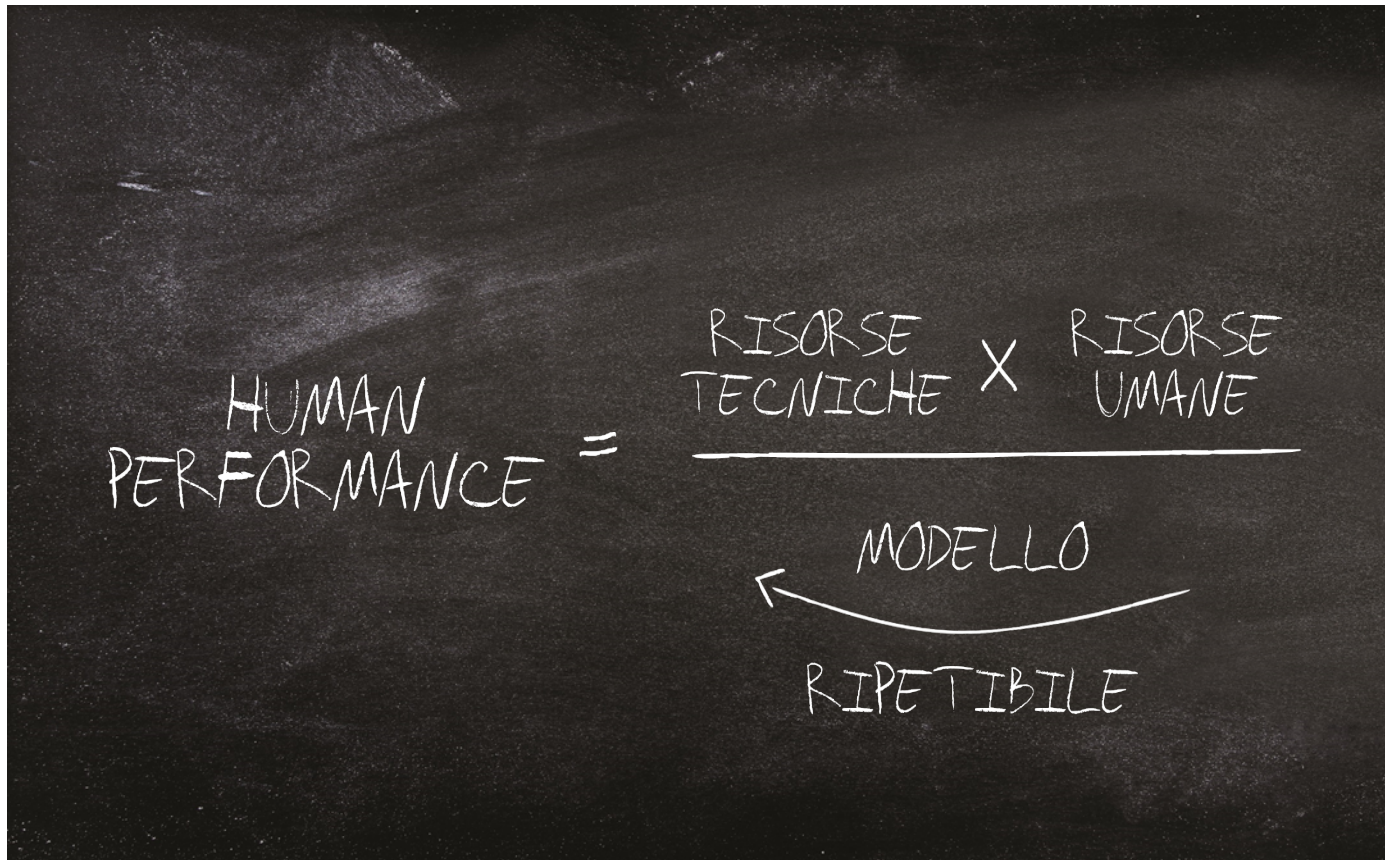 HUMAN
PERFORMANCE
=
RISORSE
TECNICHE
X
RISORSE
UMANE
MODELLO
RIPETIBILE